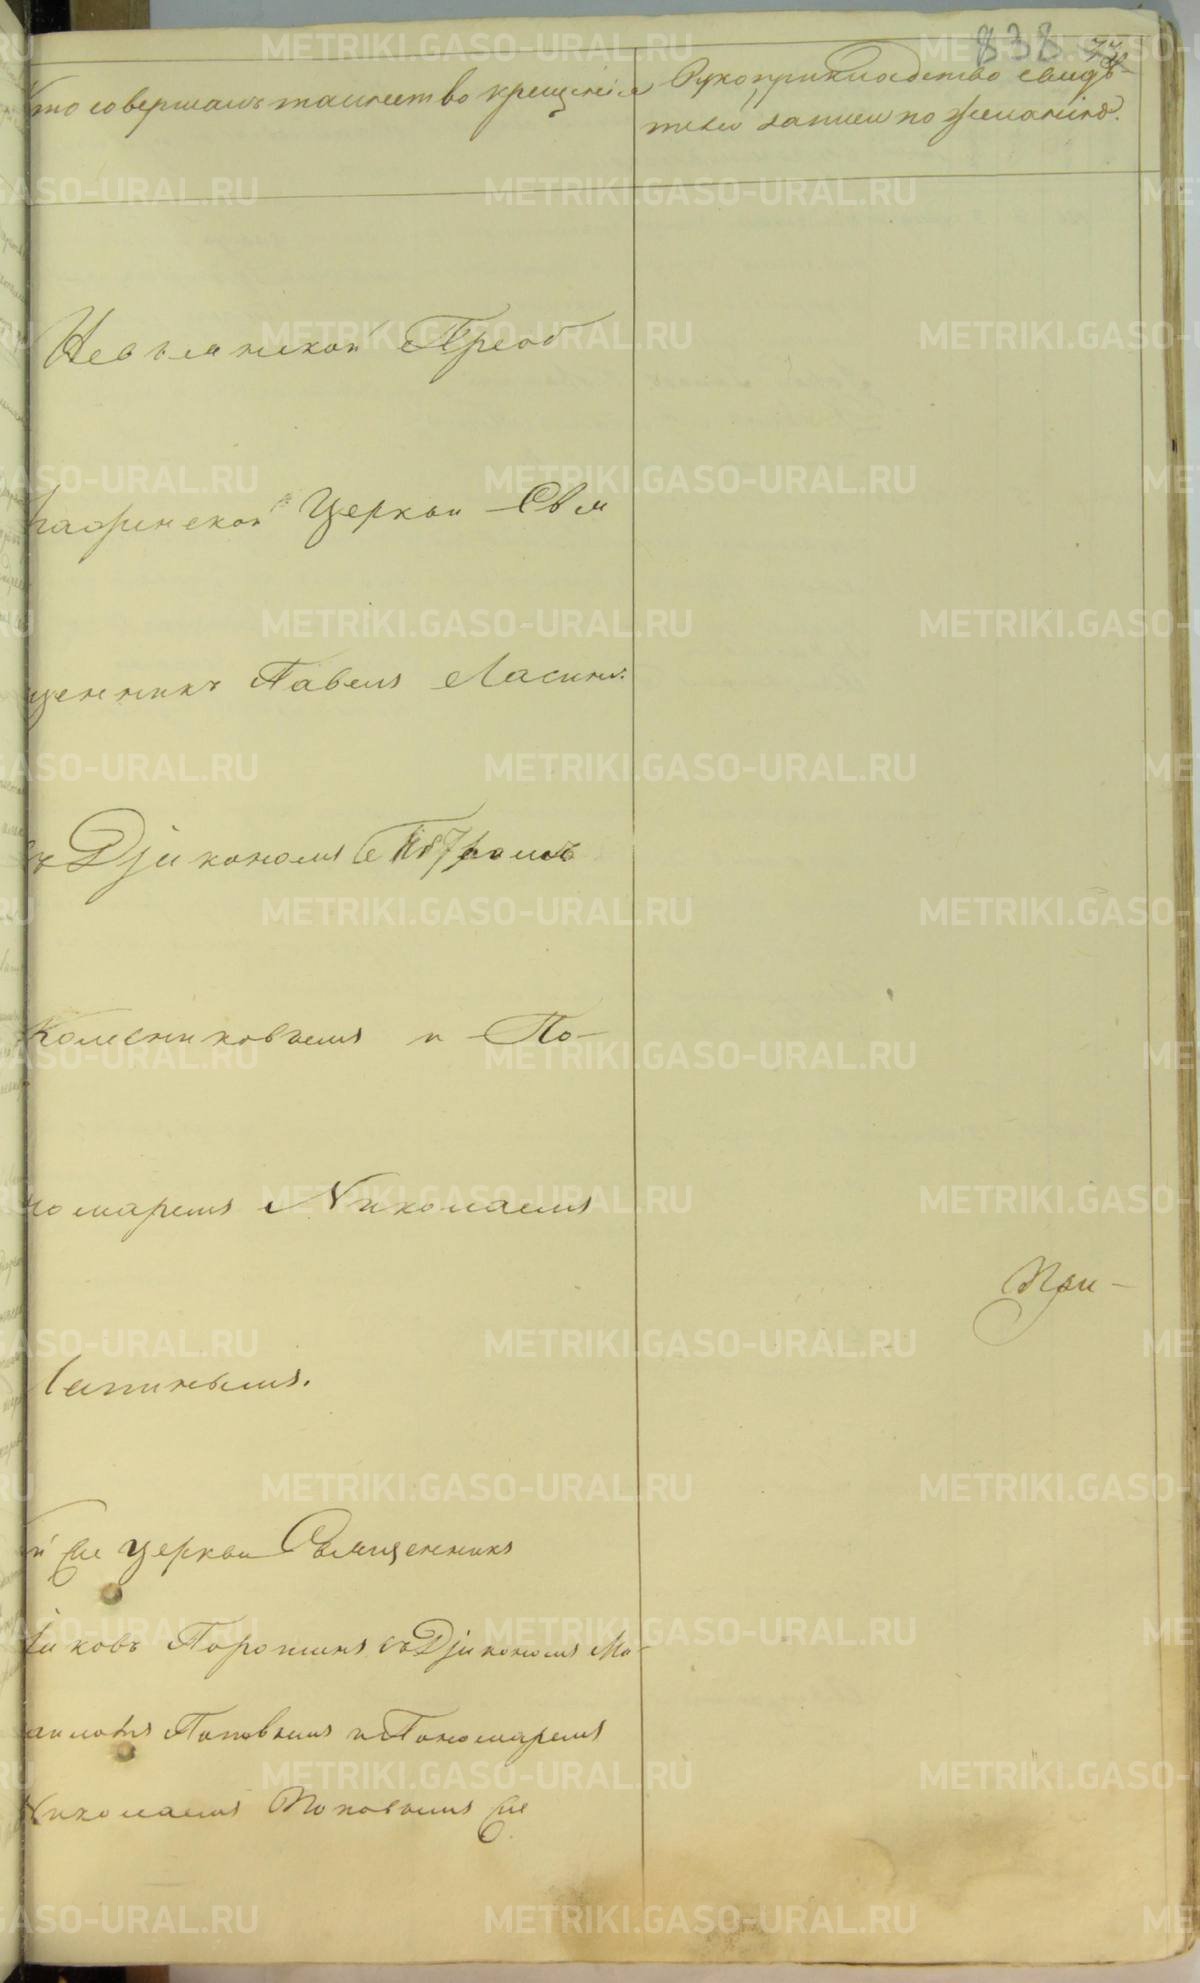 838
Кто совершалъ таинство крещенія
Рукоприкладство свидѣ-
телей записи по желанію.
Невьянской Преоб
раженской Церкви Свя
щенникъ Павелъ Ласинъ
съ Діакономъ Петромъ
Колесниковымъ и По-
номаремъ Николаемъ
Лапинымъ.
При-
й Церкви Священникъ
Іаковъ Порошинъ съ Діакономъ Ми-
хаиломъ Поповымъ и Пономаремъ
Николаемъ Поповымъ
METRIKI.GASO-URAL.RU